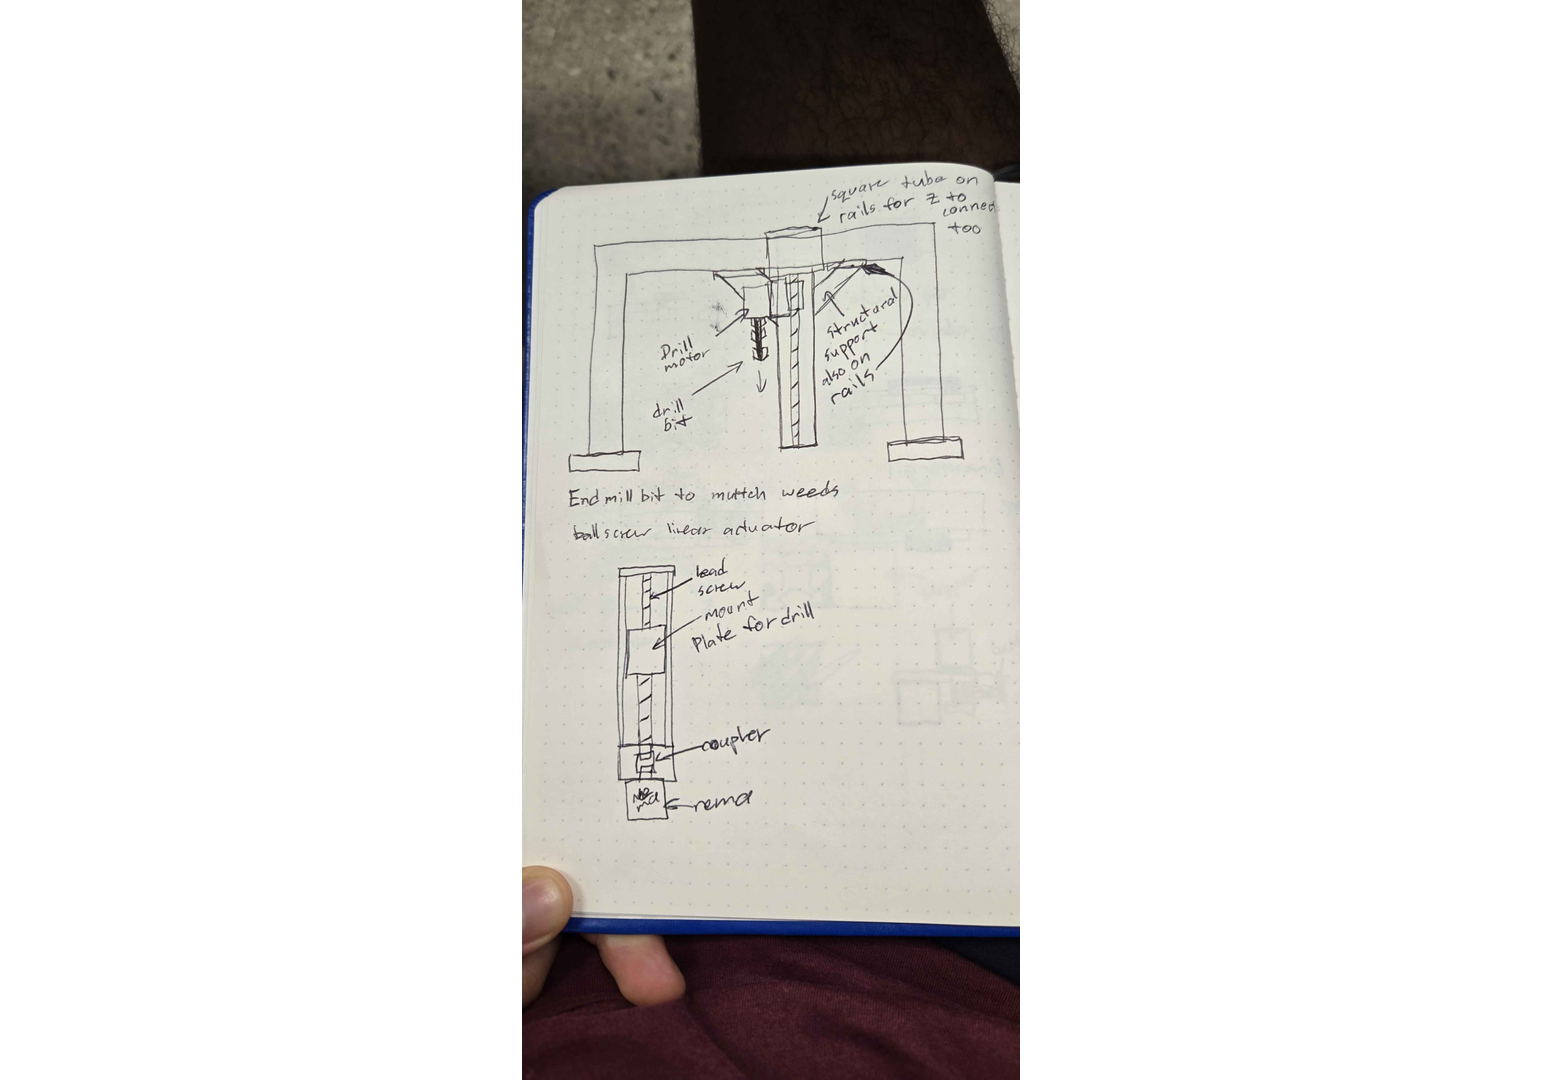 square tube on
rails for Z to
connect
too
Drill
motor
drill
bit
structural
support
also on
rails
End mill bit to multch weeds
ball screw linear actuator
lead
screw
mount
Plate for drill
coupler
nema